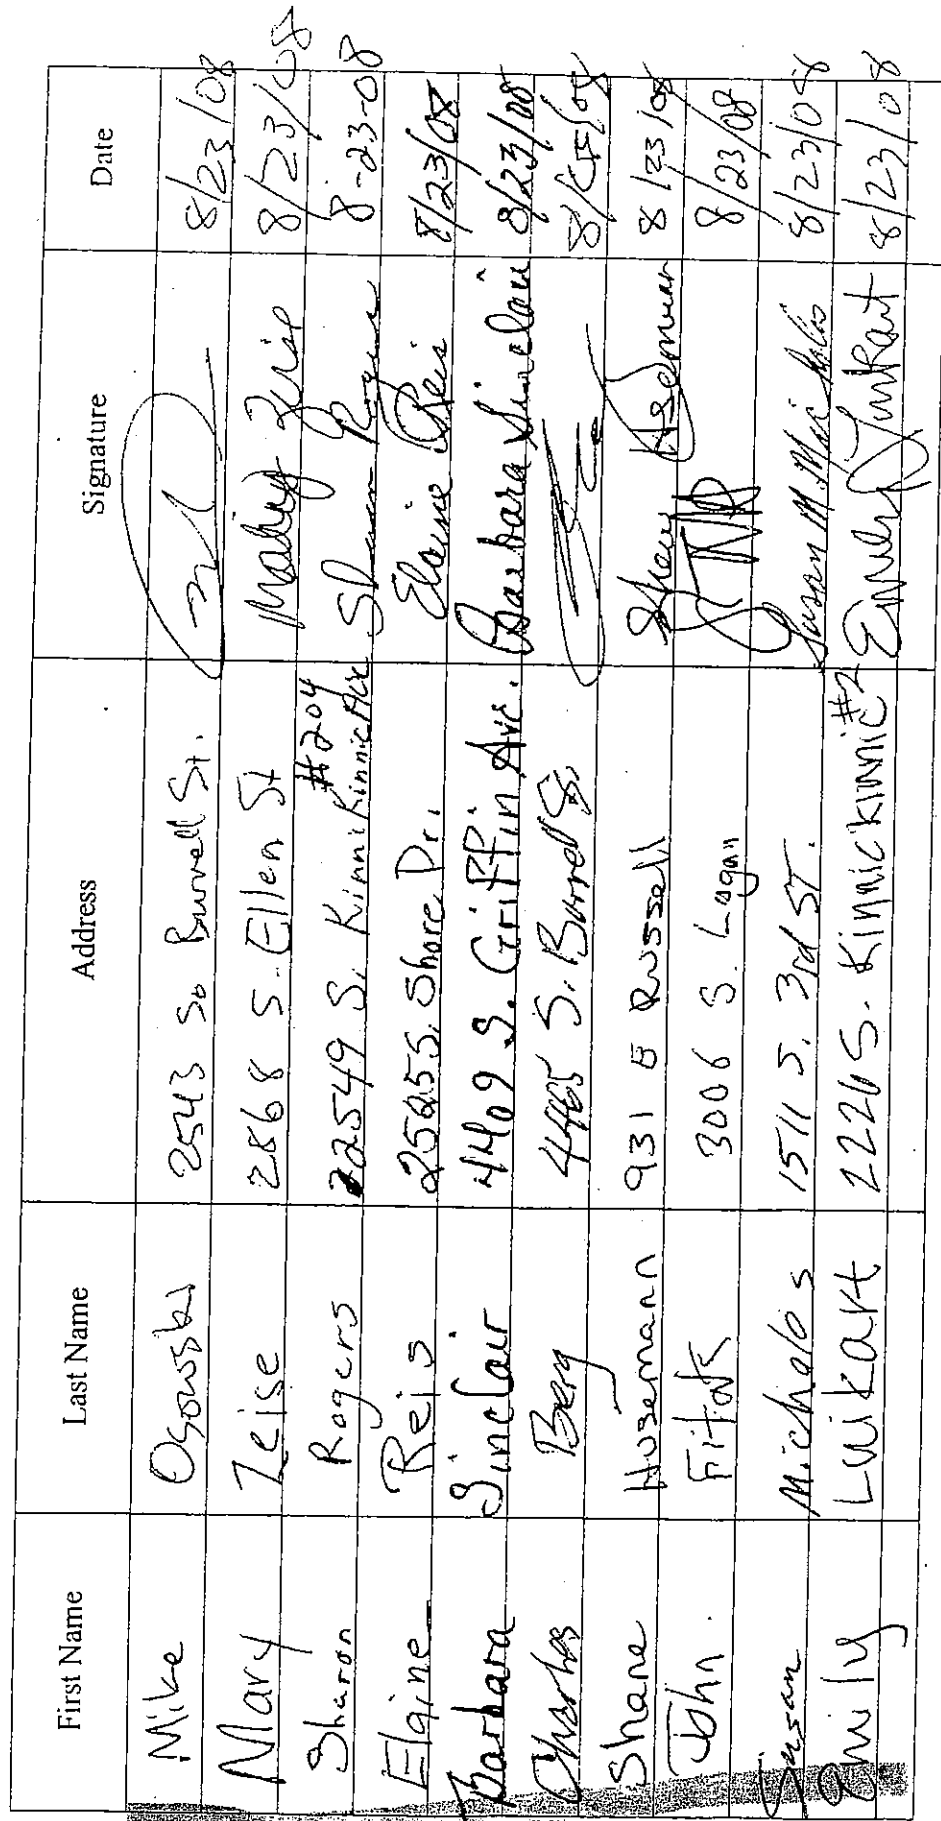 First Name Last Name Address Signature Date
Mike Osowski 2543 So Burrell St. 8/23/08
Mary Zeise 2868 S. Ellen St Mary Zeise 8/23/08
#204
Sharon Rogers 2549 S. Kinnickinnic Ave Sharon Rogers 8-23-08
Elaine Reis 2525 S. Shore Dr. Elaine Reis 8/23/08
Barbara Sinclair 4409 S. Griffin Ave. Barbara Sinclair 8/23/08
Charles Berg 4465 S. Burrell S.
Shane Husemann 931 E Russell Shane Husemann 8/23/08
John 3006 S. Logan 8/23/08
Susan Michalos 1511 S. 3rd ST. Susan M. Michalos 8/23/08
Emily Luikart 2226 S. Kinnickinnic #2 Emily Luikart 8/23/08